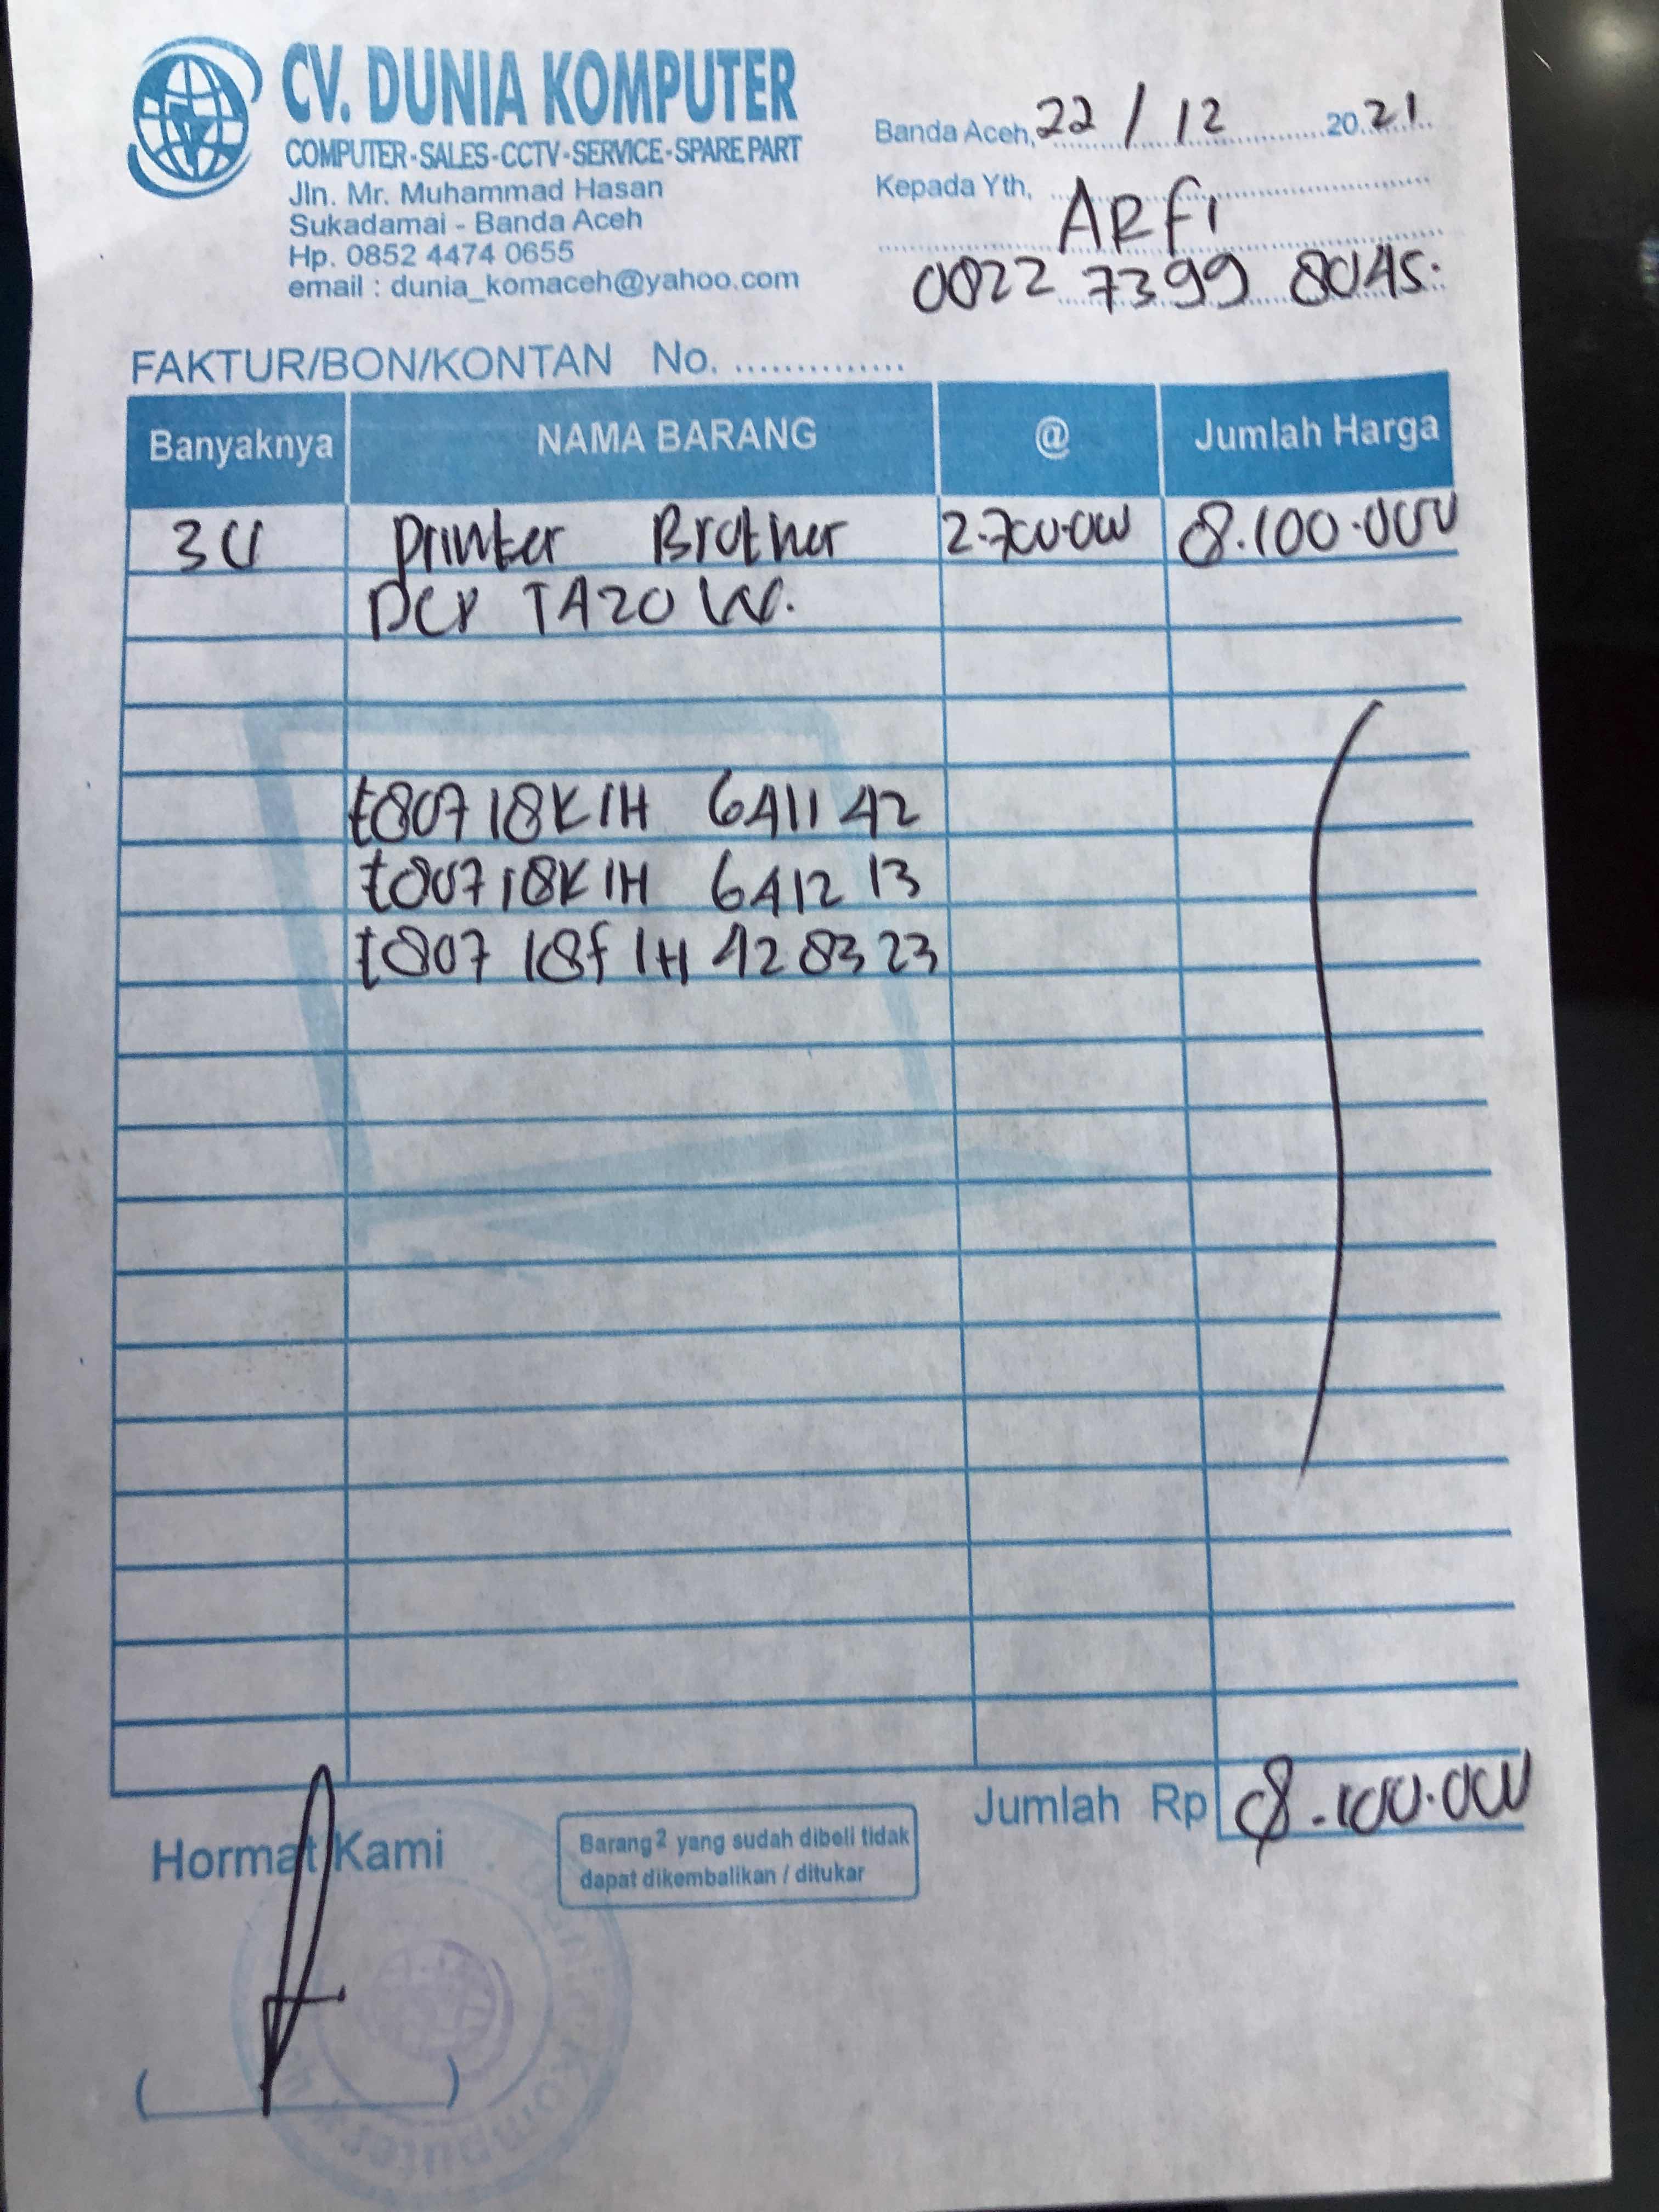 CV. DUNIA KOMPUTER
COMPUTER-SALES-CCTV-SERVICE-SPARE PART
Jln. Mr. Muhammad Hasan
Sukadamai - Banda Aceh
Hp. 0852 4474 0655
email : dunia_komaceh@yahoo.com
Banda Aceh, 22 / 12 2021
Kepada Yth,
ARFI
0822 7399 8045.
FAKTUR/BON/KONTAN No. ..............
Banyaknya NAMA BARANG @ Jumlah Harga
3 U Printer Brother 2.700.000 8.100.000
DCP TA20 W.
E80718K1H 641142
E80718K1H 641213
E80718F1H 428323
Jumlah Rp 8.100.000
Hormat Kami
Barang2 yang sudah dibeli tidak
dapat dikembalikan / ditukar
Dunia Komputer